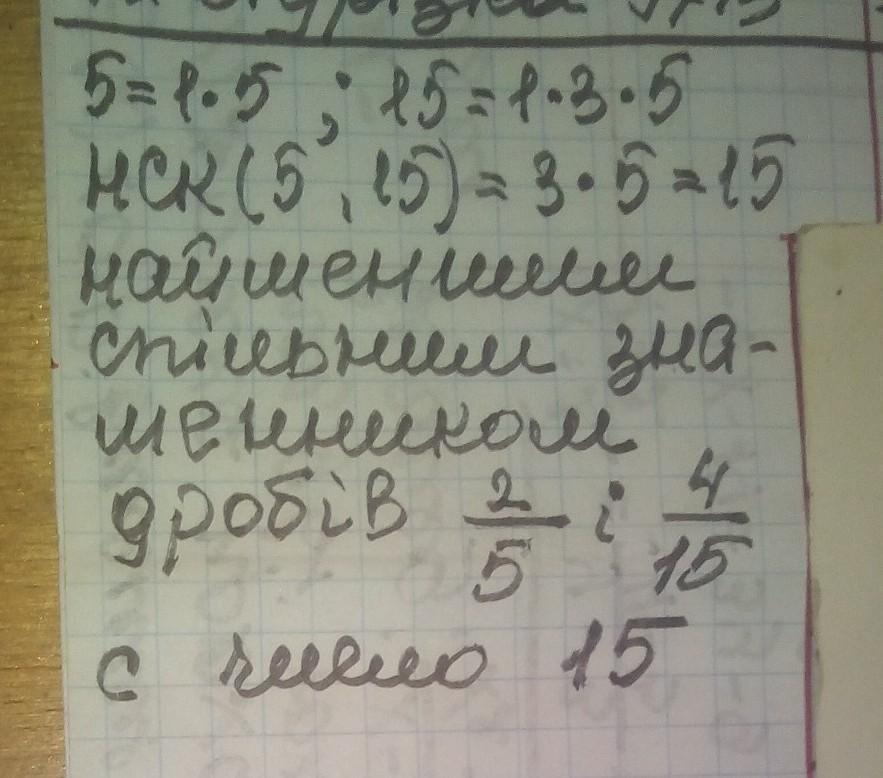 5=1·5 ; 15=1·3·5
НСК(5, 15)=3·5=15
найменшим
спільним зна-
менником
дробів 2/5 і 4/15
є число 15